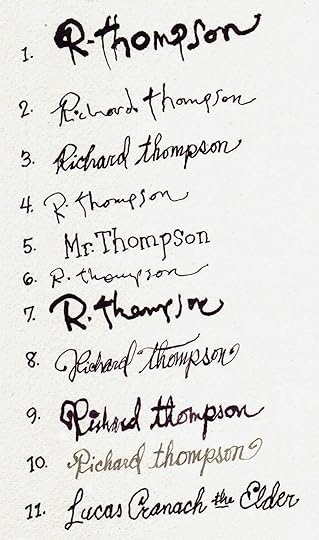 1. R. Thompson
2. Richard Thompson
3. Richard Thompson
4. R. Thompson
5. Mr. Thompson
6. R. Thompson
7. R. Thompson
8. Richard Thompson
9. Richard Thompson
10. Richard Thompson
11. Lucas Cranach the Elder